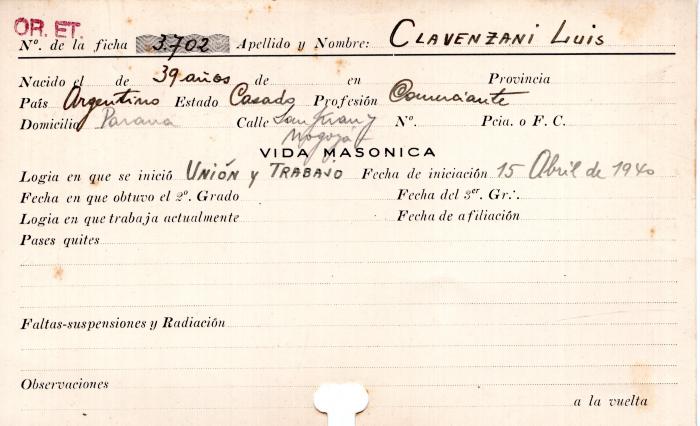 OR. ET.
Nº. de la ficha 3.702 Apellido y Nombre: CLAVENZANI LUIS
Nacido el de 39 años de en Provincia
País Argentino Estado Casado Profesión Comerciante
Domicilio Parana Calle San Juan y Nº. Pcia. o F. C.
Nogoyá
VIDA MASONICA
Logia en que se inició UNIÓN y TRABAJO Fecha de iniciación 15 Abril de 1940
Fecha en que obtuvo el 2º. Grado Fecha del 3er. Gr.·.
Logia en que trabaja actualmente Fecha de afiliación
Pases quites
Faltas-suspensiones y Radiación
Observaciones
a la vuelta